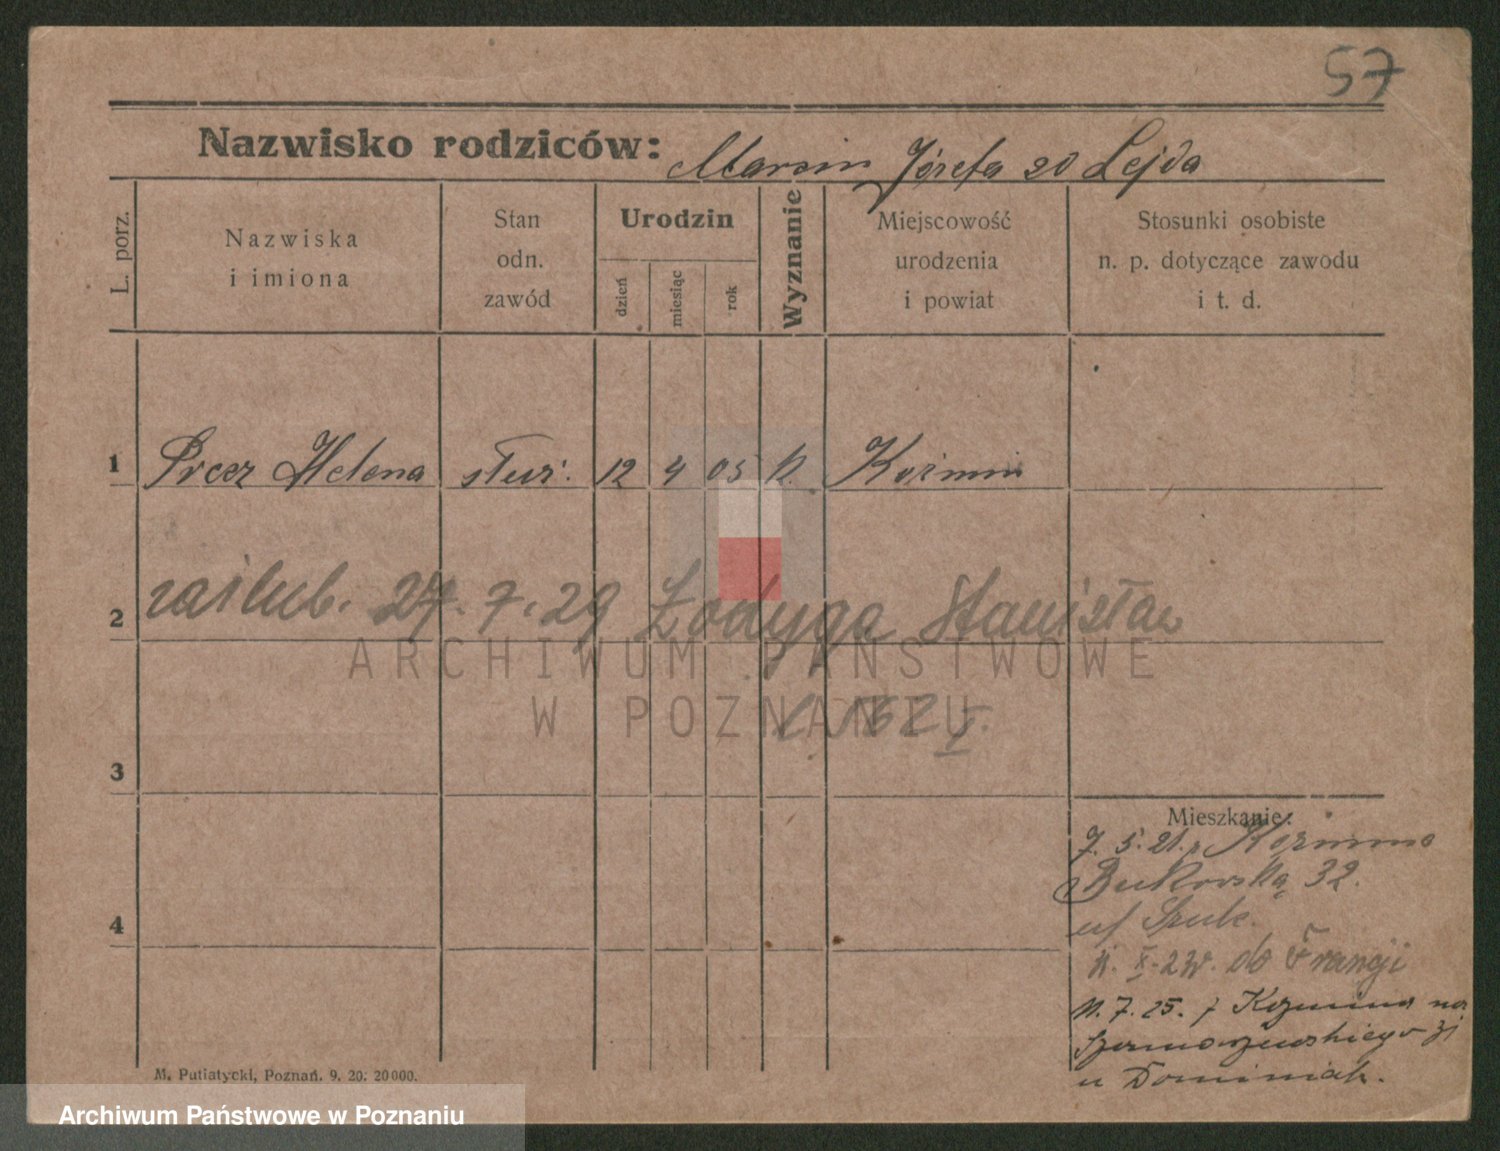 57
Nazwisko rodziców: Marcin Józefa zd Lejda
L. porz.
Nazwiska
i imiona
Stan
odn.
zawód
Urodzin
dzień
miesiąc
rok
Wyznanie
Miejscowość
urodzenia
i powiat
Stosunki osobiste
n. p. dotyczące zawodu
i t. d.
1 Helena służ. 12 4 05 k. Koźmin
2 zaślub. 27. 7. 29 Łodyga Stanisław
3
Mieszkanie:
7. 5. 21. z Koźmina
Bukowska 32.
4
do Francji
11. 7. 25. z Kozmina na
Szamarzewskiego
u Dominiak.
M. Putiatycki, Poznań. 9. 20. 20000.
ARCHIWUM PAŃSTWOWE
W POZNANIU
Archiwum Państwowe w Poznaniu